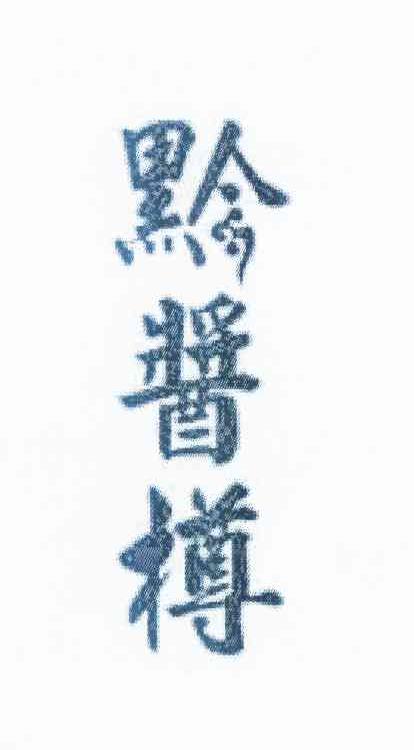 黔醬樽